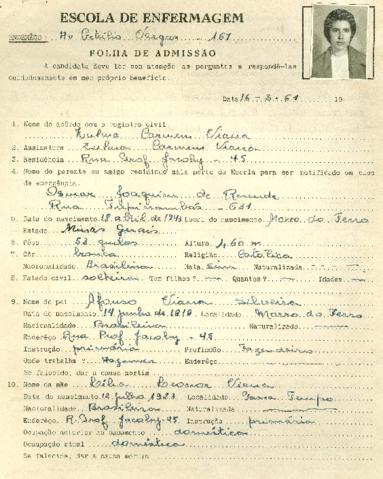 ESCOLA DE ENFERMAGEM
ENDERÊÇO: Av Getúlio Vargas - 161
FOLHA DE ADMISSÃO
A candidata deve ler com atenção as perguntas e respondê-las
cuidadosamente em seu próprio benefício.
Data 16-3-61 19
1. Nome de acôrdo com o registro civil
Zulma Carmem Viana
2. Assinatura Zulma Carmem Viana
3. Residência Rua Prof. Jacoby - 45
4. Nome do parente ou amigo residindo mais perto da Escola para ser notificado em caso
de emergência.
Osmar Joaquim de Resende
Rua Tupinambás - 631
5. Data do nascimento 18 abril de 1943 Local do nascimento Morro do Ferro
Estado Minas Gerais
6. Pêso 53 quilos Altura 1,60 m
7. Côr branca Religião Católica
Nacionalidade Brasileira Nata Sim Naturalizada
8. Estado civil solteira Tem filhos? Quantos? Idades
9. Nome do pai Afonso Viana Silveira
Data do nascimento 14 junho de 1910 Localidade Morro do Ferro
Nacionalidade Brasileira Naturalizado
Enderêço Rua Prof Jacoby - 45
Instrução primária Profissão Fazendeiro
Onde trabalha Fazenda Enderêço
Se falecido, dar a causa mortis
10. Nome da mãe Leonor Viana
Data do nascimento 12 julho 1923 Localidade Passa Tempo
Nacionalidade Brasileira Naturalizada
Enderêço R. Prof Jacoby 45 Instrução primária
Ocupação anterior ao casamento doméstica
Ocupação atual doméstica
Se falecida, dar a causa mortis